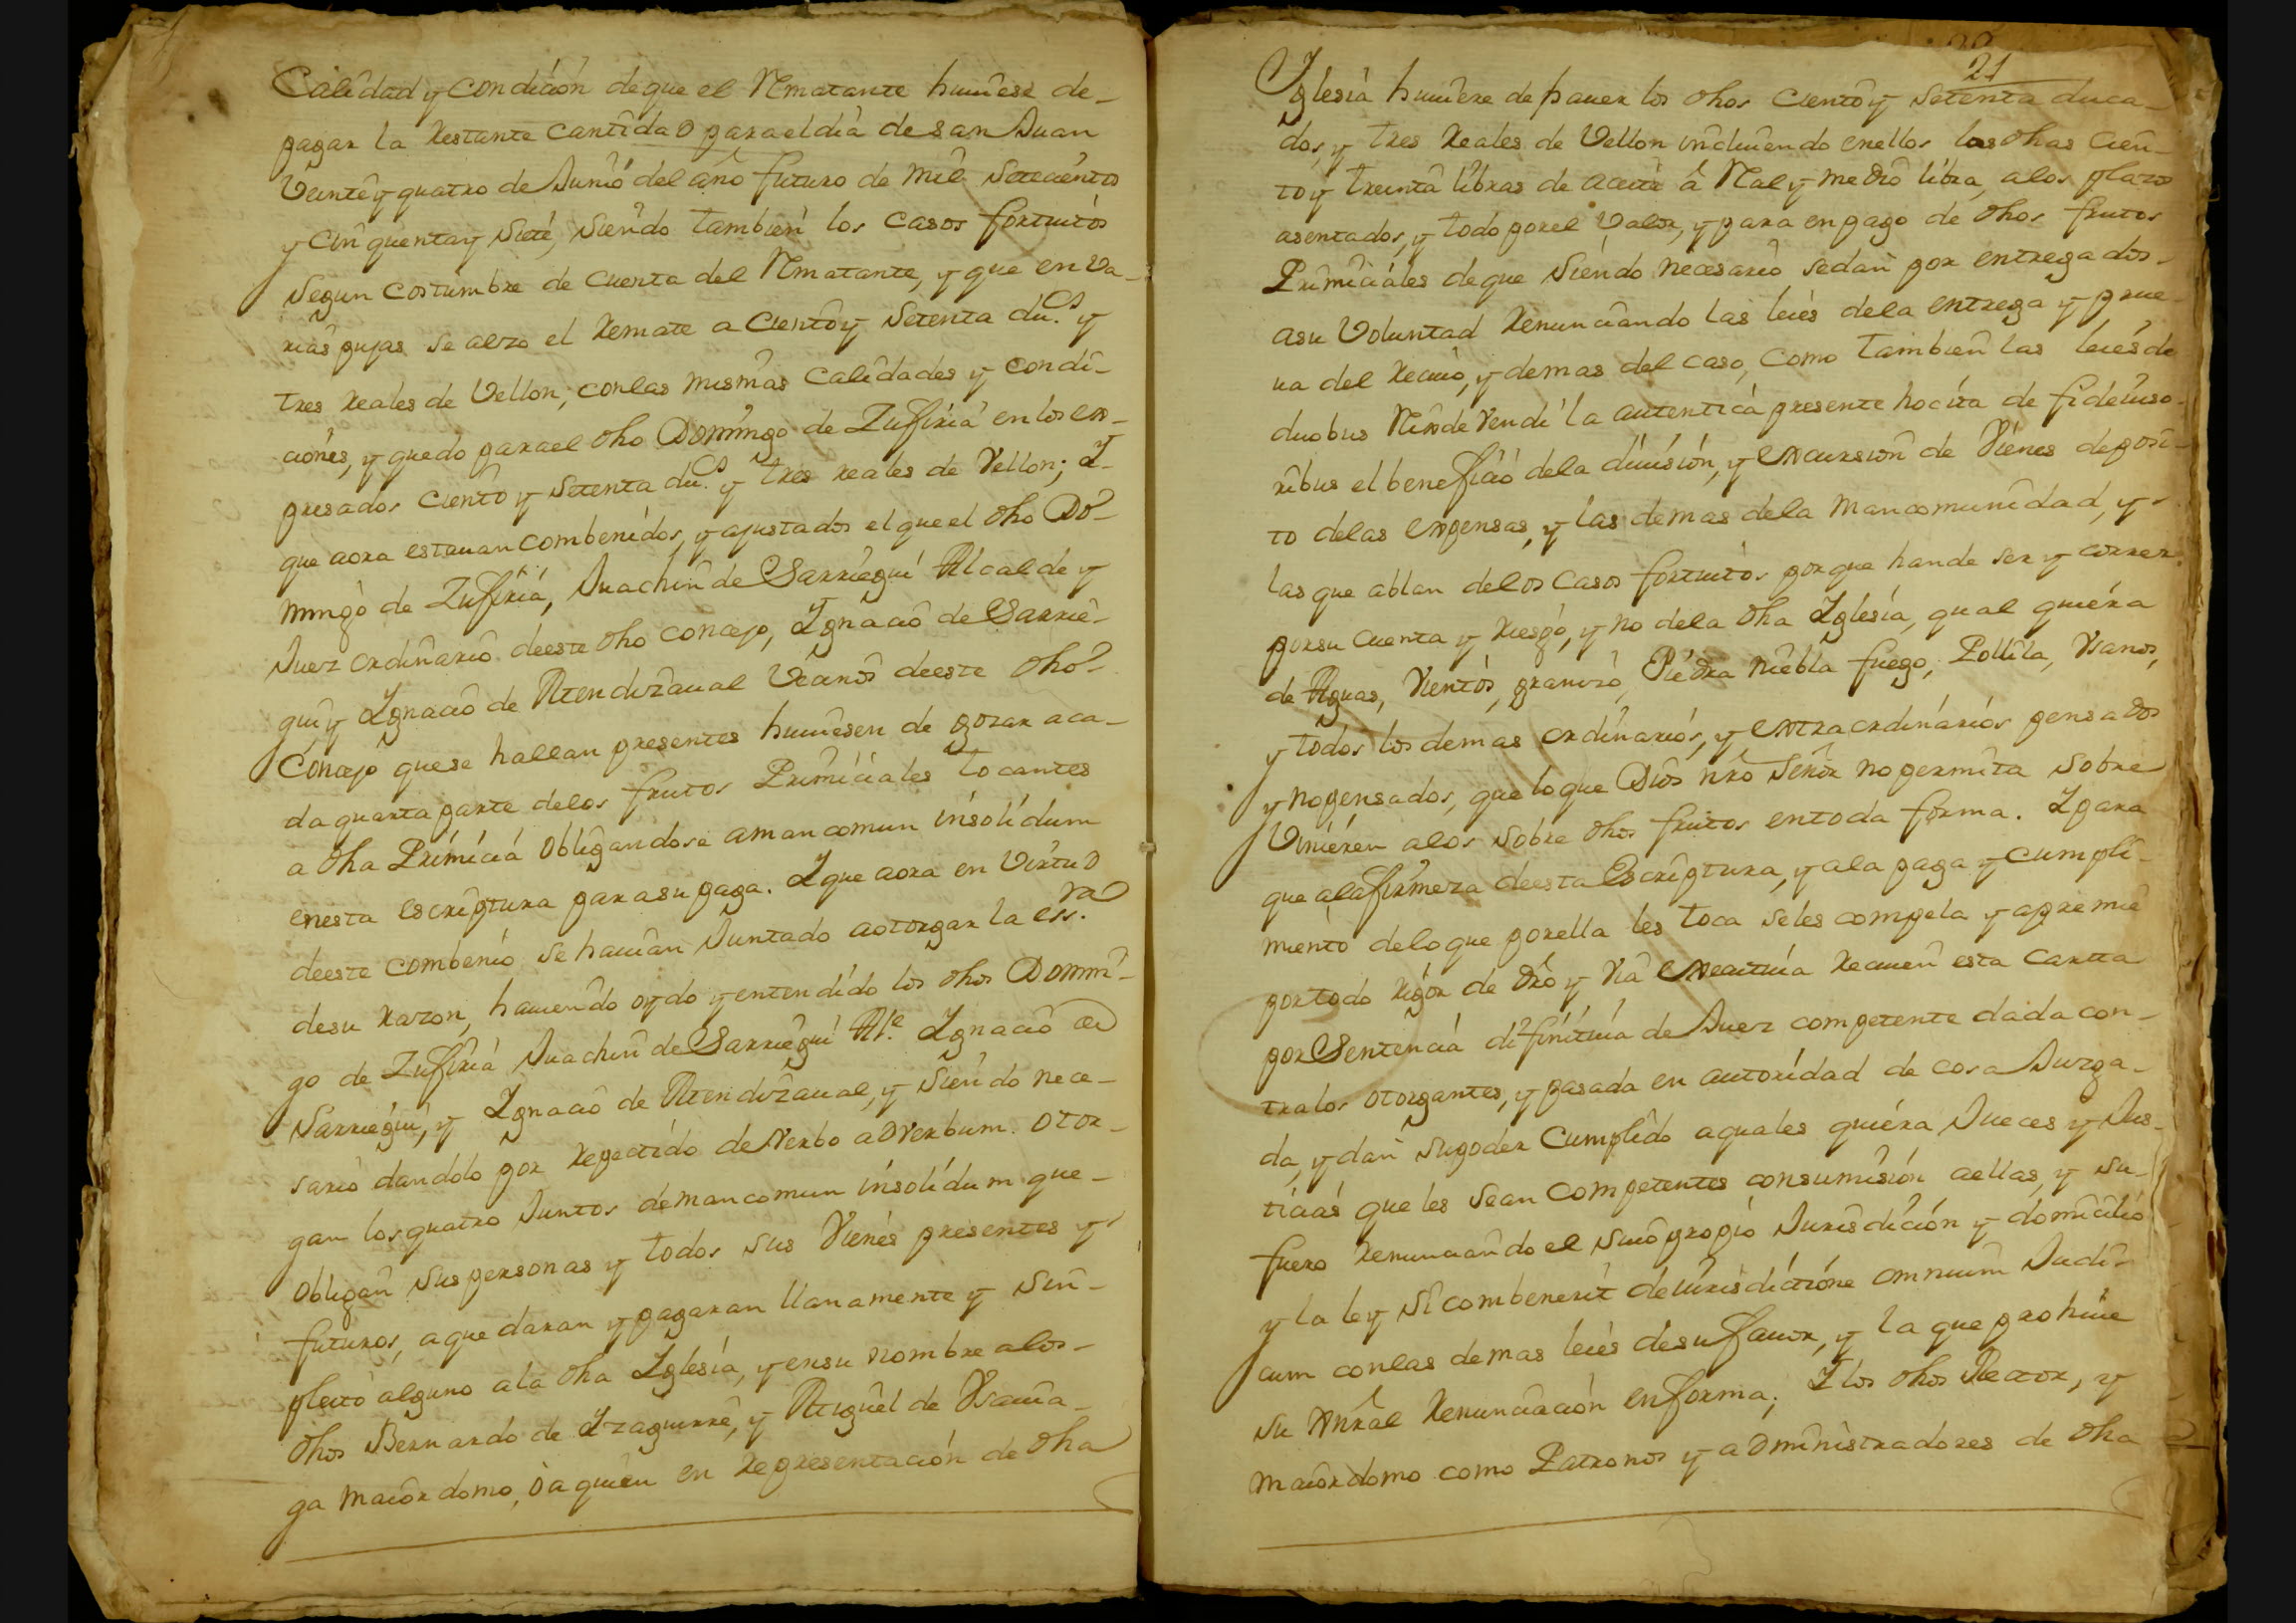 Calidad y condicion de que el Rmatante huuiese de-
pagar la Restante cantidad para el dia de San Juan
Veinte y quatro de Junio del año futuro de mil Setecientos
y cinquenta y Siete, Siendo tambien los casos fortuitos
Segun costumbre de cuenta del Rmatante, y que en va-
rias pujas se alzo el Remate a Ciento y Setenta du.s y
tres Reales de Vellon, con las mismas Calidades y condi-
ciones, y quedo para el dho Domingo de Zufiria en los ex-
presados ciento y Setenta du.s y tres reales de Vellon; Y-
que aora estauan combenidos, y ajustados el que el dho Do-
mingo de Zufiria, Juachin de Sarriegui Alcalde y
Juez ordinario de este dho concejo, Ygnacio de Sarrie-
gui y Ygnacio de Atendizaual Vecinos de este dho
Concejo que se hallan presentes huuiesen de gozar a ca-
da quarta parte de los frutos Primiciales tocantes
a dha Primicia obligandose a mancomun insolidum
en esta escriptura para su paga. Y que aora en Virtud
de este combenio se hauian Juntado a otorgar la ess.ra
de su Razon, hauiendo oydo y entendido los dhos Domin-
go de Zufiria Juachin de Sarriegui Al.e Ygnacio de
Sarriegui, y Ygnacio de Atendizaual, y Siendo nece-
sario dandolo por Repetido de Verbo ad Verbum. otor-
gan los quatro Juntos de mancomun insolidum que-
obligan sus personas y todos sus Vienes presentes y
futuros, a que daran y pagaran llanamente y Sin-
pleito alguno a la dha Yglesia, y en su nombre a los-
dhos Bernardo de Yzaguirre, y Miguel de Vsauia-
ga maiordomo, o a quien en Representacion de dha
21
Yglesia huuiere de hauer los dhos ciento y Setenta duca-
dos, y tres Reales de Vellon incluiendo en ellos las dhas cien-
to y treinta libras de aceite â Real y medio libra, a los plazos
asentados, y todo por el Valor, y para en pago de dhos frutos
Primiciales de que Siendo necesario se dan por entregados-
a su Voluntad Renunciando las leies de la entrega y prue-
ua del Reciuo, y demas del caso, como tambien las leies de
duobus Reis de Vendi la autentica presente hocita de fideiuso-
ribus el beneficio de la diuision, y excursion de Vienes deposi-
to de las expensas, y las demas de la mancomunidad, y-
las que ablan de los casos fortuitos porque han de ser y correr
por su cuenta y Riesgo, y no de la dha Yglesia, qual quiera
de Aguas, Vientos, granizo, Piedra niebla fuego, Pollila, Vsanos,
y todos los demas ordinarios, y extraordinarios pensados
y no pensados, que lo que Dios nro Señor no permita sobre
Viniéren a los sobre dhos frutos en toda forma. Y para
que a la firmeza de esta Escriptura, y a la paga y cumpli-
miento de lo que por ella les toca se les compela y apremie
por todo Rigor de dro y Via executiua Reciuen esta Cartta
por Sentencia difinitiua de Juez competente dada con-
tra los otorgantes, y pasada en autoridad de cosa Juzga-
da, y dan su poder Cumplido a quales quiera Jueces y Jus-
ticias que les sean competentes con sumision a ellas, y su-
fuero Renunciando el suio propio Jurisdicion y domicilio
y la ley Si combenerit de iurisdictione omnium Judi-
cum con las demas leies de su fauor, y la que prohiue
su Xnral Renunciacion en forma; Y los dhos Rector, y
maiordomo como Patronos y administradores de dha